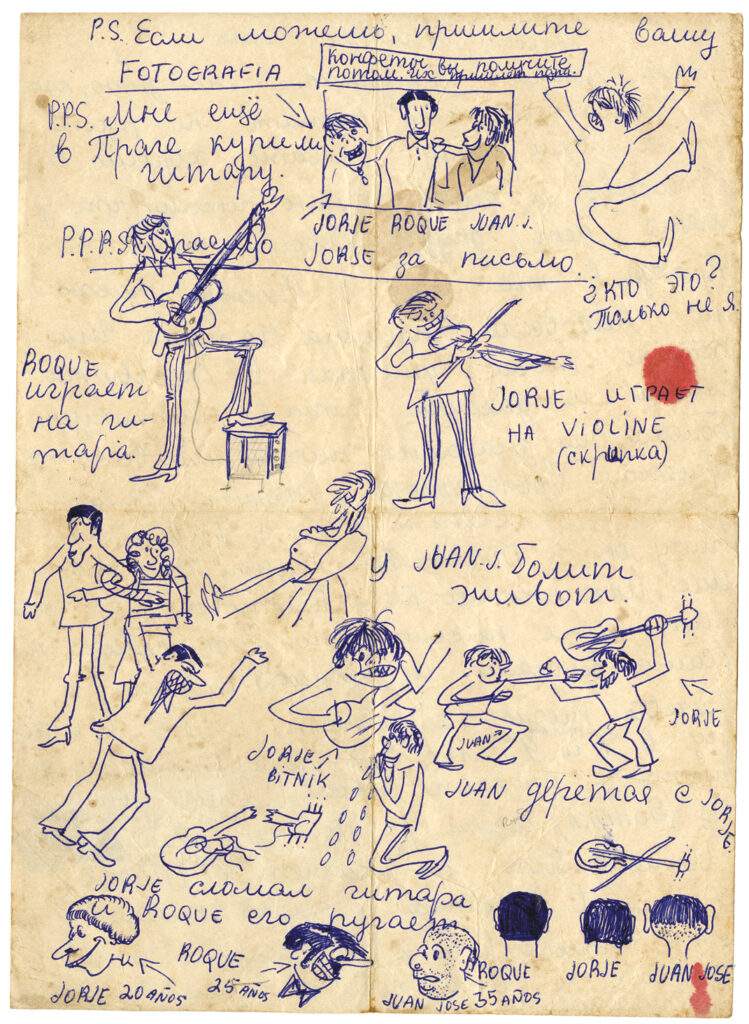 P.S. Если можешь, пришлите вашу
FOTOGRAFIA
Конфеты вы получите
потом. их пришлёт папа.
P.P.S. Мне ещё
в Праге купили
гитару.
JORJE ROQUE JUAN J.
P.P.P.S. Спасибо
JORJE за письмо.
¿КТО ЭТО?
только не я.
ROQUE
играет
на ги-
тара.
JORJE ИГРАЕТ
НА VIOLINE
(скрипка)
У JUAN.J. болит
живот.
JORJE
JUAN
JORJE
BITNIK
JUAN дерется с JORJE.
JORJE сломал гитара
и ROQUE его ругает
JORJE 20 AÑOS
ROQUE
25 AÑOS
JUAN JOSE 35 AÑOS
ROQUE
JORJE
JUAN JOSE